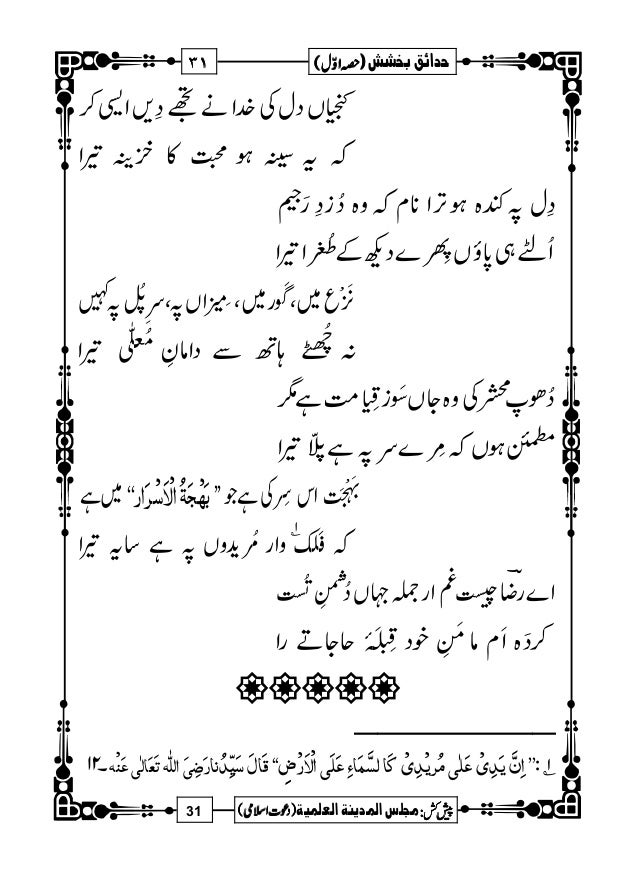 حدائق بخشش (حصہ اوّل)
۳۱
کنجیاں دل کی خدا نے تجھے دِیں ایسی کر
کہ یہ سینہ ہو محبت کا خزینہ تیرا
دِل پہ کندہ ہو ترا نام کہ وہ دُزدِ رَجیم
اُلٹے ہی پاؤں پھرے دیکھ کے طُغرا تیرا
نَزْع میں، گور میں، مِیزاں پہ، سرِ پُل پہ کہیں
نہ چُھٹے ہاتھ سے دامانِ مُعلّٰی تیرا
دُھوپ محشر کی وہ جاں سَوز قِیامت ہے مگر
مطمئن ہوں کہ مِرے سر پہ ہے پلّا تیرا
بَہْجَت اس سِر کی ہے جو ’’بَهْجَةُ الْاَسْرَار‘‘ میں ہے
کہ فَلک۱ وار مُریدوں پہ ہے سایہ تیرا
اے رضاؔ چیست غم ار جملہ جہاں دُشمنِ تُست
کردَہ اَم ما مَنِ خود قِبلۂ حاجاتے را
۱ : ’’اِنَّ یَدِیْ عَلٰی مُرِیْدِیْ کَا لسَّمَاءِ عَلَی الْاَرْضِ‘‘ قَالَ سَیِّدُنا رَضِیَ اللّٰه تَعَالٰی عَنْه ۔۱۲
پیش کش: مجلس المدینة العلمیة (دعوتِ اسلامی)
31